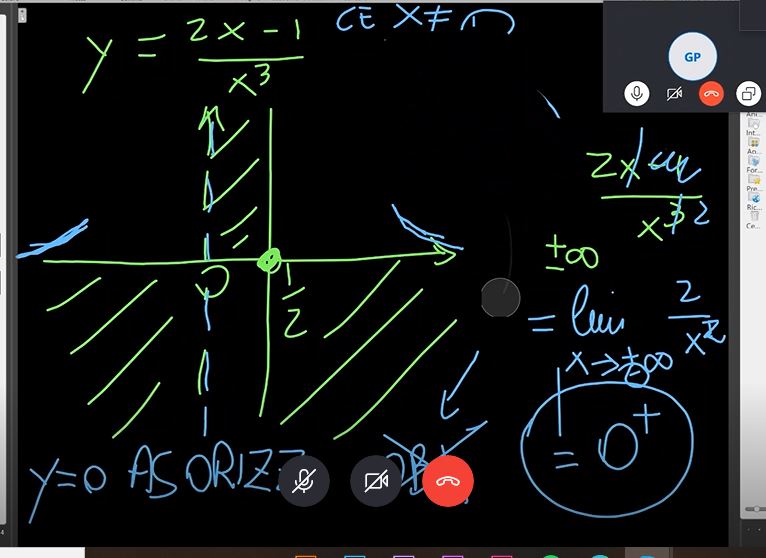 y = 2x - 1
x³
CE X ≠ 0
GP
2x
x³ 2
±∞
= lim 2
x²
x → ±∞
= 0⁺
0
1
2
y=0 ASORIZZ
Int...
Ag...
For...
Pre...
Ric...
Ce...